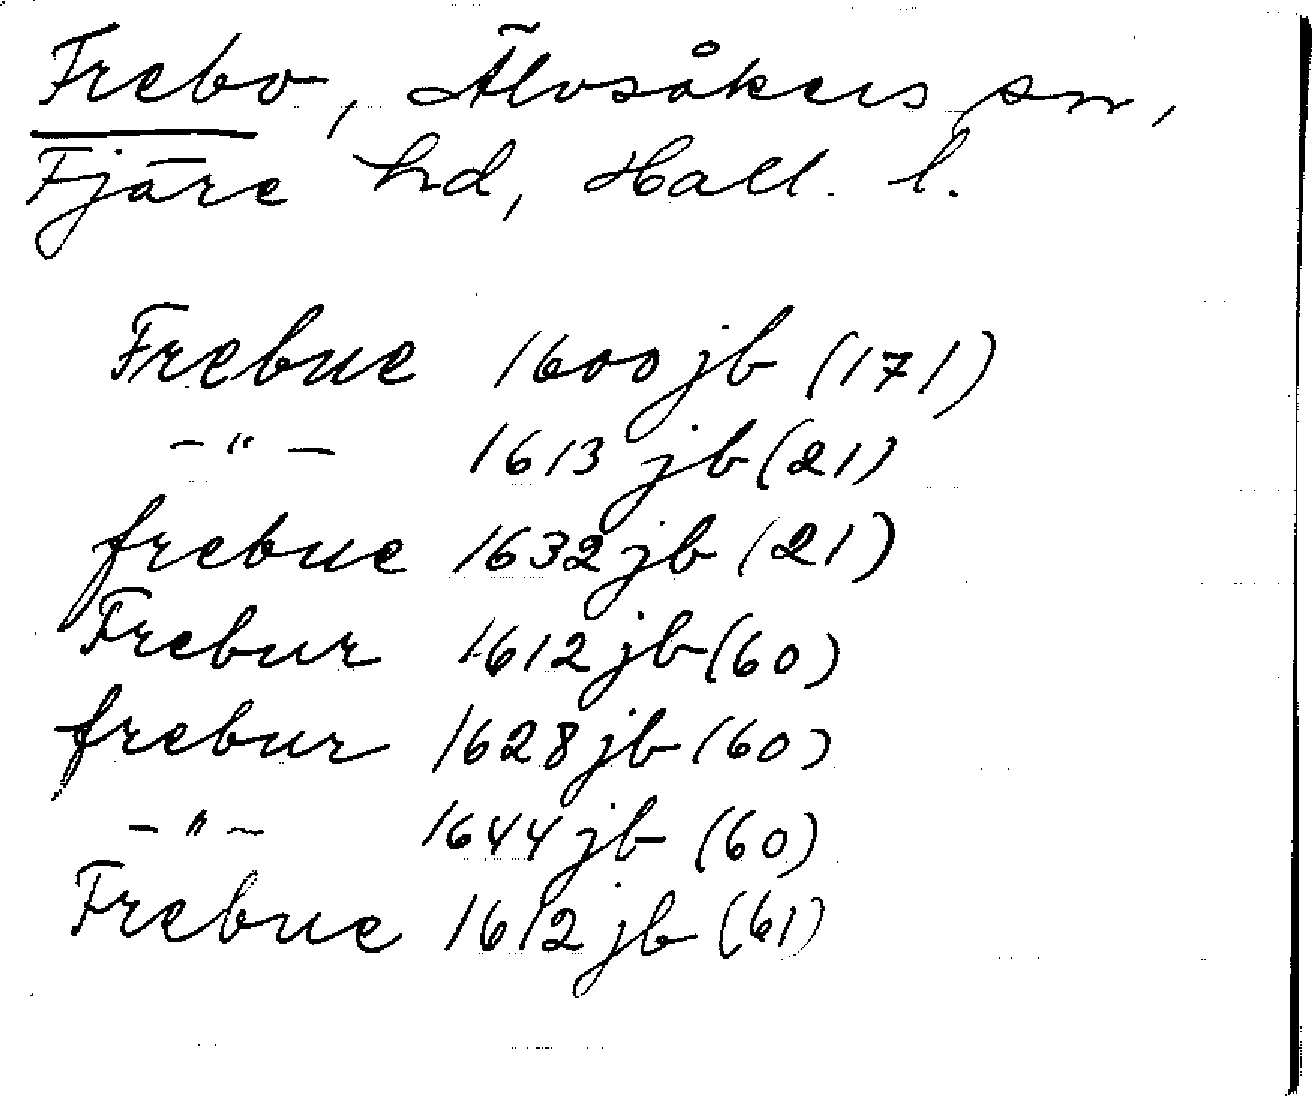 Frebo, Älvsåkers sn,
Fjäre hd, Hall. l.
Frebue 1600 jb (171)
-"- 1613 jb (21)
frebue 1632 jb (21)
Frebur 1612 jb (60)
frebur 1628 jb (60)
-"- 1644 jb (60)
Frebue 1612 jb (61)